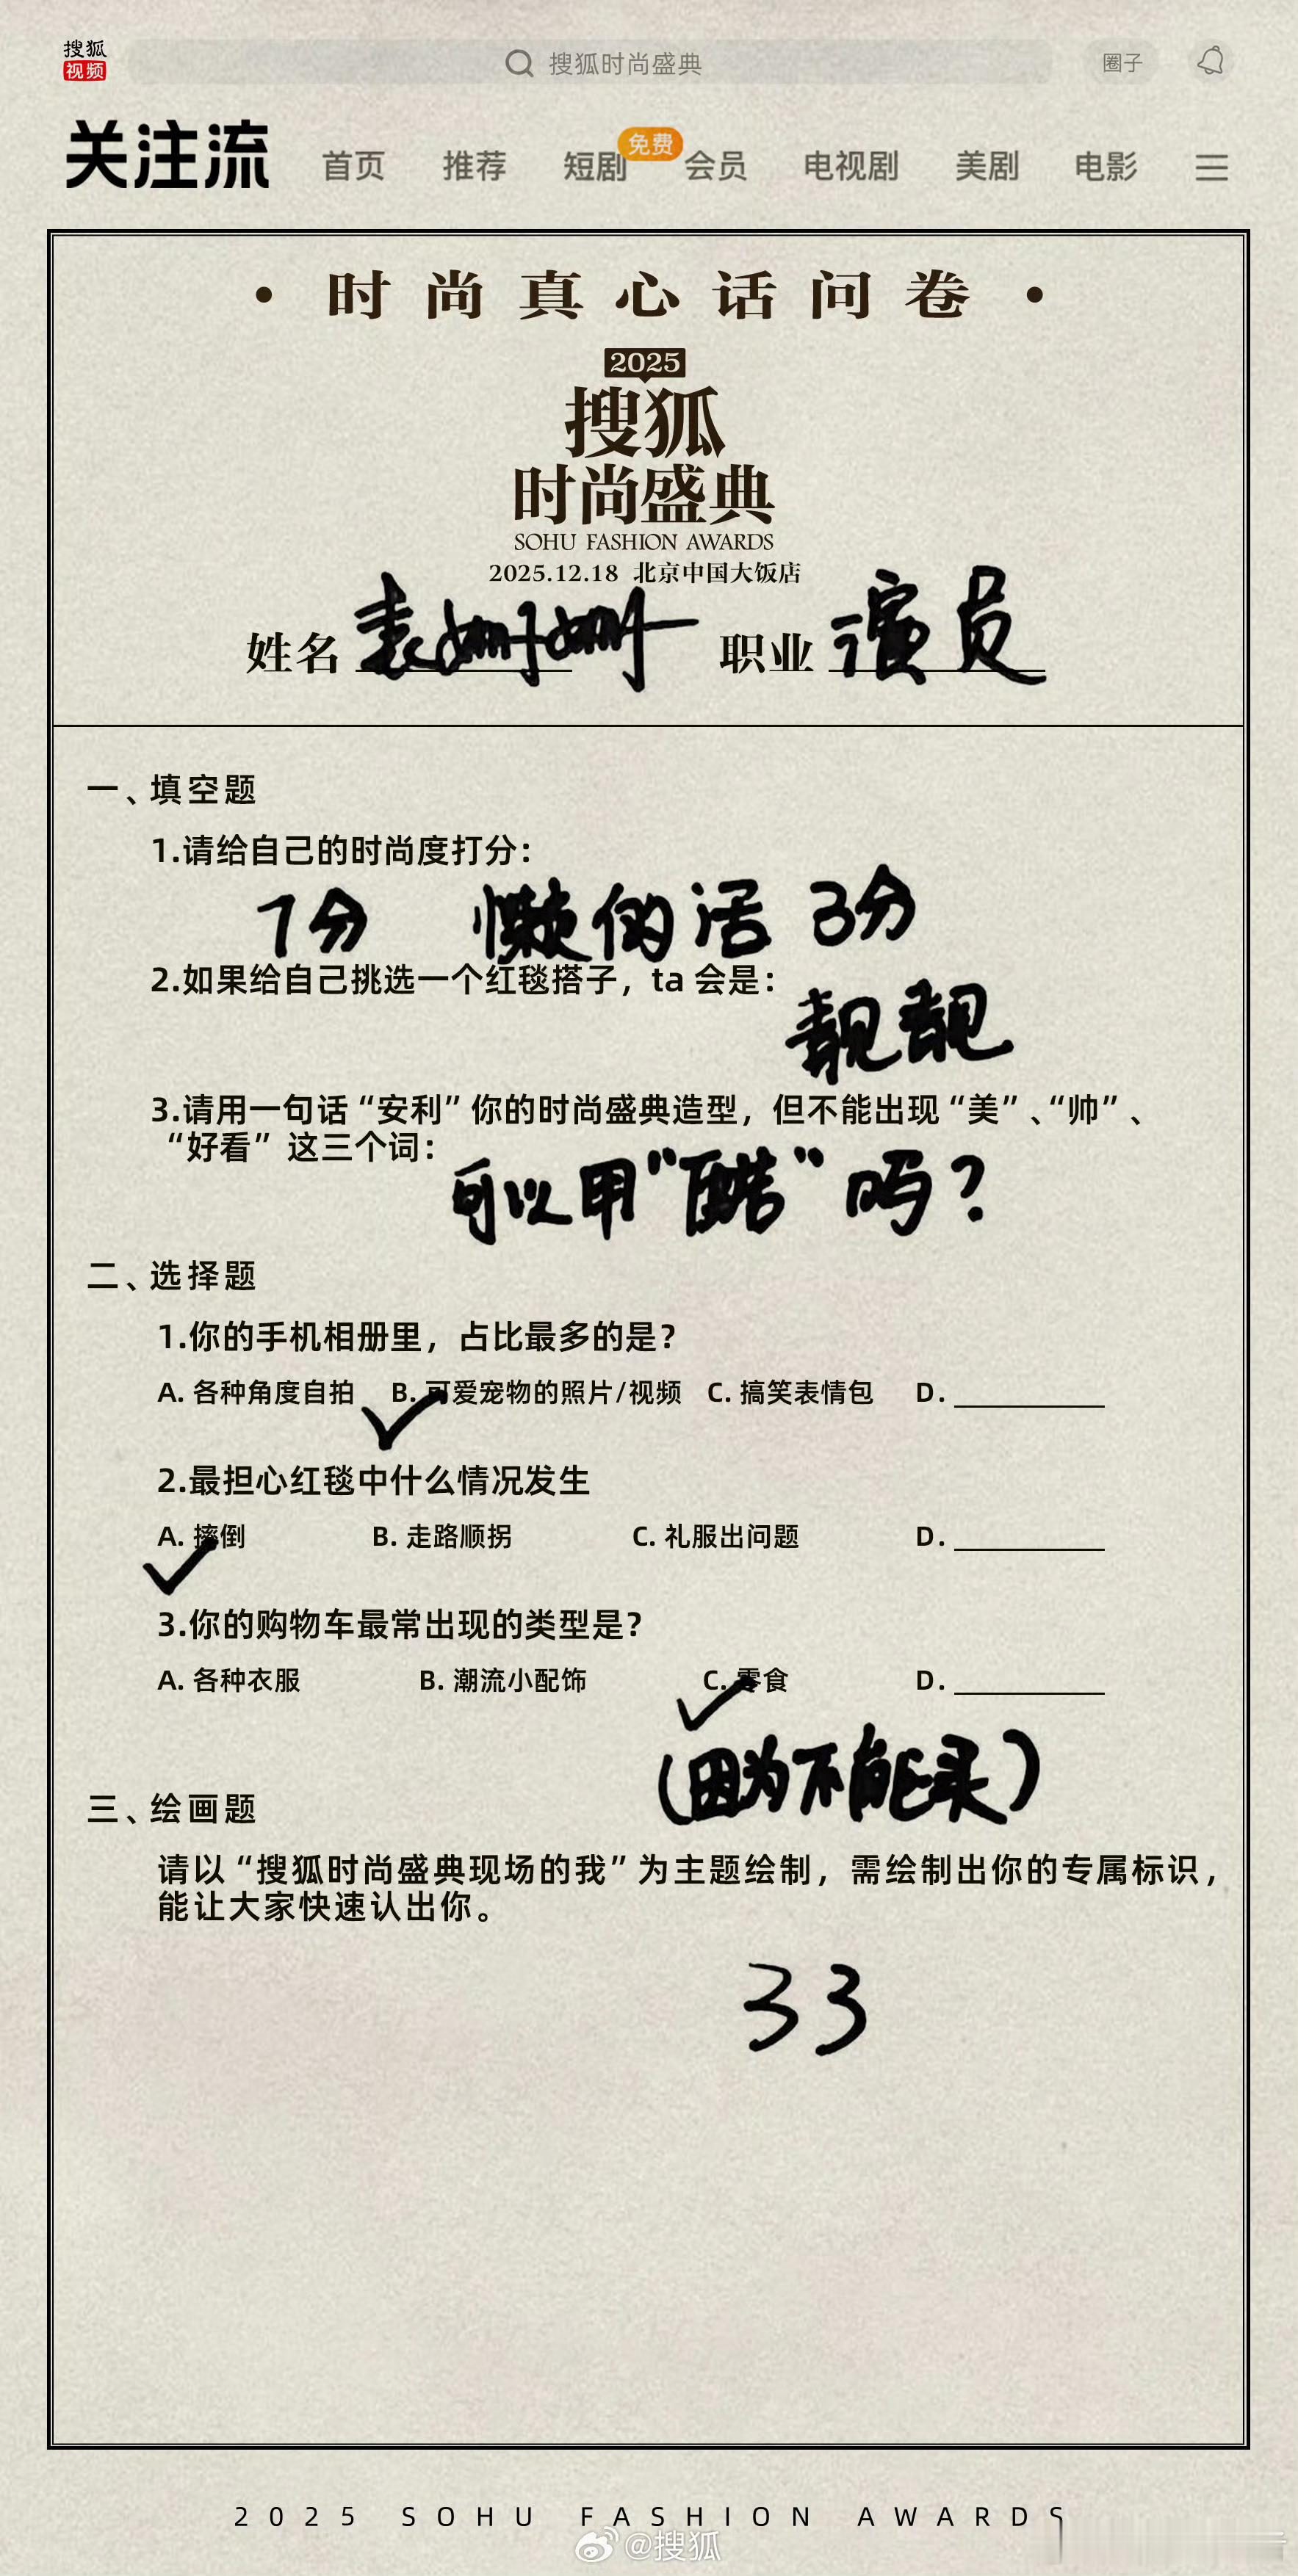 搜狐
视频
搜狐时尚盛典
圈子
关注流
首页 推荐 短剧 免费 会员 电视剧 美剧 电影
·时尚真心话问卷·
2025
搜狐
时尚盛典
SOHU FASHION AWARDS
2025.12.18 北京中国大饭店
姓名 袁姗姗 职业 演员
一、填空题
1.请给自己的时尚度打分：
7分 懒的话 3分
2.如果给自己挑选一个红毯搭子，ta 会是：
靓靓
3.请用一句话“安利”你的时尚盛典造型，但不能出现“美”、“帅”、
“好看” 这三个词：
可以用“酷”吗？
二、选择题
1.你的手机相册里，占比最多的是？
A. 各种角度自拍 B. 可爱宠物的照片/视频 C. 搞笑表情包 D.
2.最担心红毯中什么情况发生
A. 摔倒 B. 走路顺拐 C. 礼服出问题 D.
3.你的购物车最常出现的类型是？
A. 各种衣服 B. 潮流小配饰 C. 零食 D.
（因为不能录）
三、绘画题
请以“搜狐时尚盛典现场的我”为主题绘制，需绘制出你的专属标识，
能让大家快速认出你。
33
2025 SOHU FASHION AWARDS
@搜狐